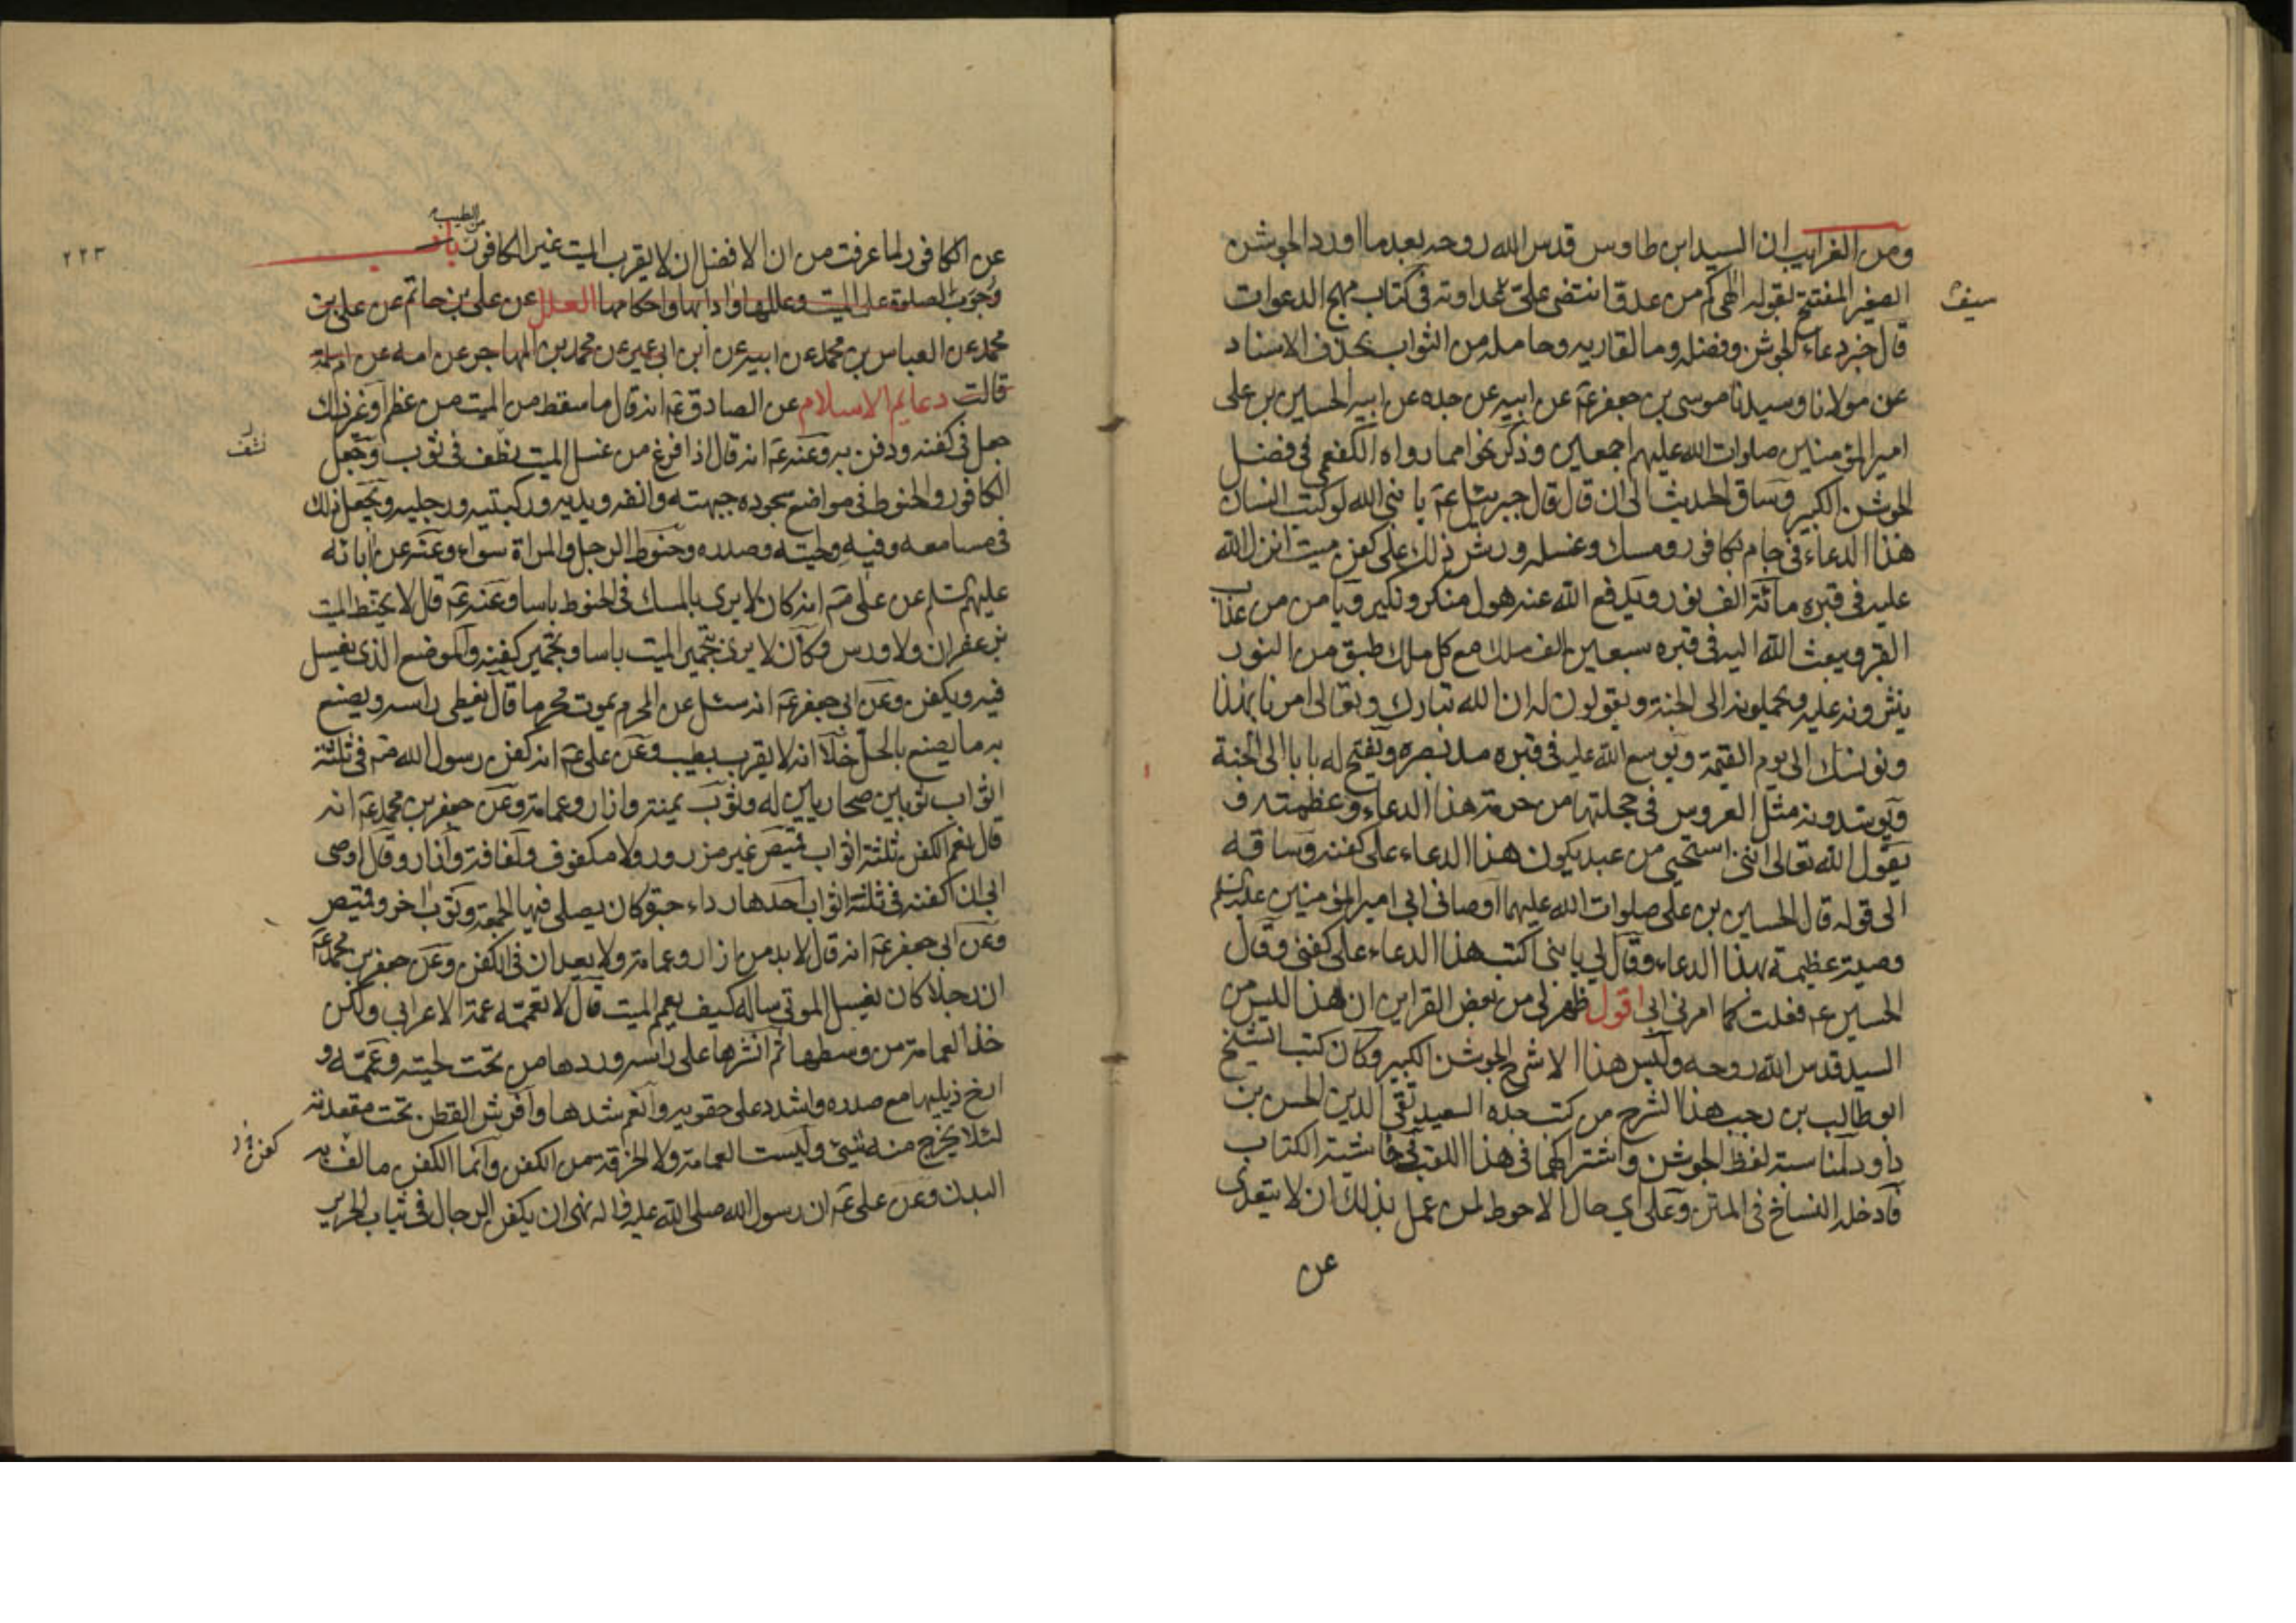 ومن الغرايب ان السيد ابن طاوس قدس الله روحه بعد ما اورد الجوشن
الصغير المفتتح بقوله الهى كم من عدو انتضى على عداوته فى كتاب مهج الدعوات
سيف
قال خبر دعاء الجوشن وفضله وما لقاريه وحامله من الثواب بحذف الاسناد
عن مولانا وسيدنا موسى بن جعفر عه عن ابيه عن جده عن ابيه الحسين بن على
امير المؤمنين صلوات الله عليهم اجمعين وذكر نحوا مما رواه الكفعمى فى فضل
الجوشن الكبير وساق الحديث الى ان قال قال جبرئيل عه يا نبى الله لو كتب انسان
هذا الدعاء فى جام بكافور ومسك وغسله ورش ذلك على كفن ميت انزل الله
عليه فى قبره مائة الف نور ويدفع الله عنه هول منكر ونكير ويامن من عذاب
القبر ويبعث الله اليه فى قبره سبعين الف ملك مع كل ملك طبق من النور
ينثرونه عليه ويحملونه الى الجنة ويقولون له ان الله تبارك وتعالى امرنا بهذا
ونونسك الى يوم القيمة ويوسع الله عليه فى قبره مد بصره ويفتح له بابا الى الجنة
ويوسدونه مثل العروس فى حجلتها من حرمة هذا الدعاء وعظمته و
يقول الله تعالى اننى استحيى من عبد يكون هذا الدعاء على كفنه وساقه
الى قوله قال الحسين بن على صلوات الله عليهما اوصانى ابى امير المؤمنين عليه السلم
وصية عظيمة بهذا الدعاء وقال لي يا بنى اكتب هذا الدعاء على كفنى وقال
الحسين عه فعلت كما امرنى ابى اقول ظهر لى من بعض القراين ان هذا ليس من
السيد قدس الله روحه وليس هذا الا شرح الجوشن الكبير وكان كتب الشيخ
ابو طالب بن رجب هذا الشرح من كتب جده السعيد تقى الدين الحسن بن
داود لمناسبة لفظ الجوشن واشتراكهما فى هذا اللقب فى حاشية الكتاب
فادخله النساخ فى المتن وعلى اي حال الاحوط لمن عمل بذلك ان لا يتعدى
عن
٢٢٣
من الطيب
عن الكافور لما عرفت من ان الافضل ان لا يقرب الميت غير الكافور باب
وجوب الصلوة على الميت وعللها وادابها واحكامها العلل عن على بن حاتم عن على بن
محمد عن العباس بن محمد عن ابيه عن ابن ابى عمير عن محمد بن المهاجر عن امه عن ام سلمة
قالت دعايم الاسلام عن الصادق عه انه قال ما سقط من الميت من عظم او غير ذلك
جعل فى كفنه ودفن به وعنه عه انه قال اذا فرغ من غسل الميت نظف فى ثوب وجعل
نشف
الكافور والحنوط فى مواضع سجوده جبهته وانفه ويديه وركبتيه ورجليه ويجعل ذلك
فى مسامعه وفيه ولحيته وصدره وحنوط الرجل والمراة سواء وعنه عن آبائه
عليهم السلم عن على عه انه كان لا يرى بالمسك فى الحنوط باسا وعنه عه قال لا يحنط الميت
بزعفران ولا ورس وكان لا يرى بتجمير الميت باسا وبتجمير كفنه والموضع الذى يغسل
فيه ويكفن وعن ابى جعفر عه انه سئل عن المحرم يموت محرما قال يغطى راسه ويصنع
به ما يصنع بالحل خلا انه لا يقرب بطيب وعن على عه انه كفن رسول الله ص فى ثلثة
اثواب ثوبين صحاريين له وثوب يمنة وازار وعمامة وعن جعفر بن محمد عه انه
قال نعم الكفن ثلثة اثواب قميص غير مزرور ولا مكفوف ولفافة وازار وقال اوصى
ابى ان اكفنه فى ثلثة اثواب احدها رداء حبرة كان يصلى فيها الجمعة وثوب اخر وقميص
وعن ابى جعفر عه انه قال لا بد من ازار وعمامة ولا يعدان فى الكفن وعن جعفر بن محمد عه
ان رجلا كان يغسل الموتى ساله كيف يعمم الميت قال لا تعممه عمة الاعرابى ولكن
خذ العمامة من وسطها ثم انشرها على راسه وردها من تحت لحيته وعممه و
ارخ ذيليها مع صدره واشدد على حقويه وانعم شدها وافرش القطن تحت مقعدته
لئلا يخرج منه شيئ وليست العمامة ولا الخرقة من الكفن وانما الكفن ما لف به
البدن وعن على عه ان رسول الله صلى الله عليه واله نهى ان يكفن الرجال فى ثياب الحرير